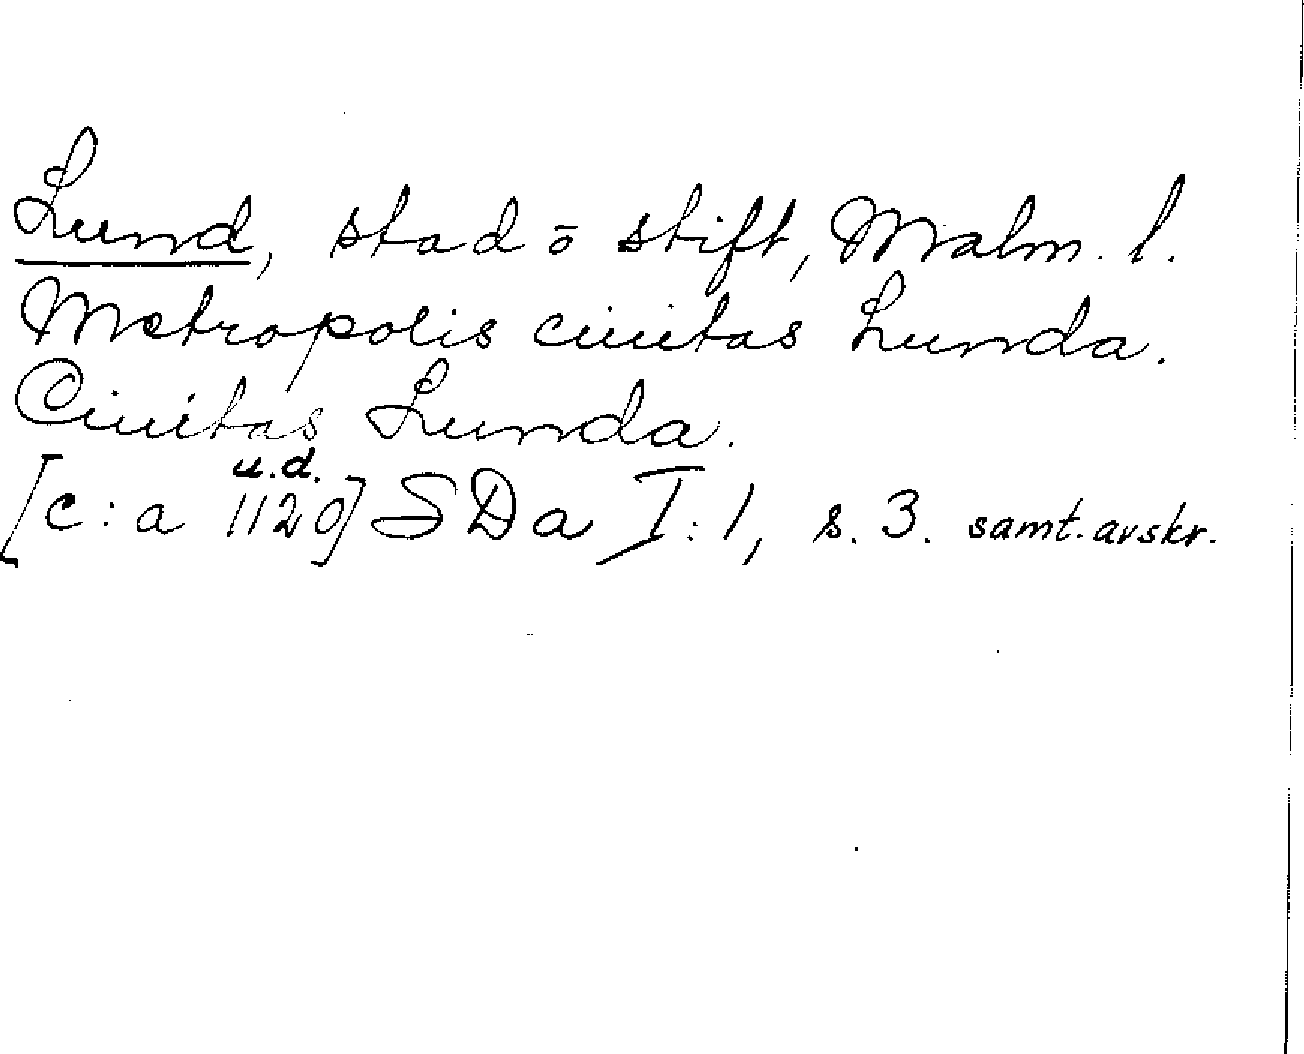 Lund, stad ō stift, Malm. l.
Metropolis ciuitas Lunda.
Ciuitas Lunda.
u.d.
[c:a 1120] SDa I:1, s. 3. samt. avskr.